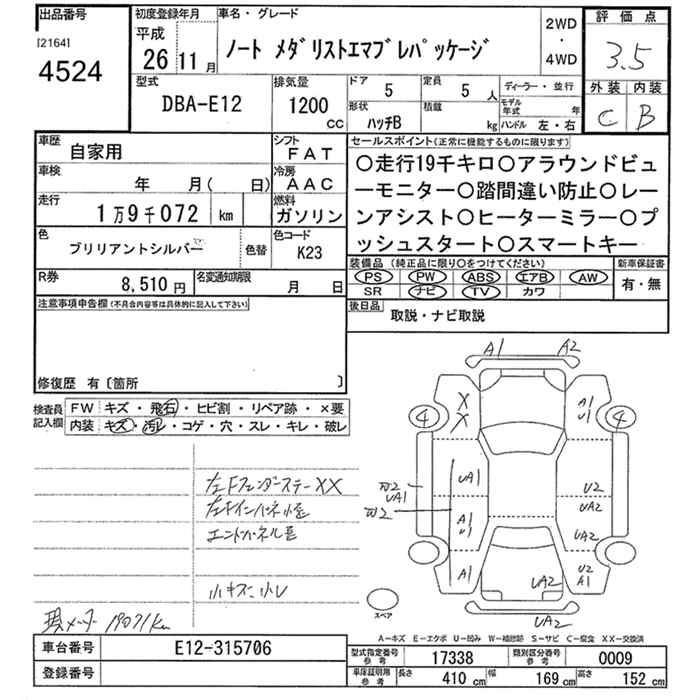 出品番号
[2164]
4524
初度登録年月
平成
26 11 月
車名・グレード
ノート メダリストエマブレパッケージ
2WD
・
4WD
評価点
3.5
外装 内装
C B
型式
DBA-E12
排気量
1200
CC
ドア
5
定員
5 人
形状
ハッチB
積載
kg
ディーラー・並行
モデル年式 年
ハンドル 左・右
車歴
自家用
シフト
FAT
車検
年 月( 日)
冷房
AAC
走行
1万9千072 km
燃料
ガソリン
色
ブリリアントシルバー
色替
色コード
K23
R券
8,510 円
名変通知期限
月 日
セールスポイント(正常に機能するものに限ります)
○走行19千キロ○アラウンドビュ
ーモニター○踏間違い防止○レー
ンアシスト○ヒーターミラー○プ
ッシュスタート○スマートキー
装備品 (純正品に限り○をつけてください)
PS PW ABS エアB AW
SR ナビ TV カワ
新車保証書
有・無
後日品
取説・ナビ取説
注意事項申告欄(不具合内容等は具体的に記入して下さい)
修復歴 有〔箇所 〕
検査員記入欄
FW キズ・飛石・ヒビ割・リペア跡・×要
内装 キズ・汚レ・コゲ・穴・スレ・キレ・破レ
左Fフェンダーステー XX
小キズ小レ
現メーター 19071km
A1 A2
X
X
A1
U1
4 4
UA1
UA1
A1
U1
A1
U2
UA2
UA2
U2
A1
UA2
UA2
スペア
A-キズ E-エクボ U-凹み W-補修跡 S-サビ C-腐食 XX-交換済
車台番号
E12-315706
登録番号
型式指定番号
参考
17338
類別区分番号
参考
0009
車庫証明用
参考
長さ 410 cm
幅 169 cm
高さ 152 cm